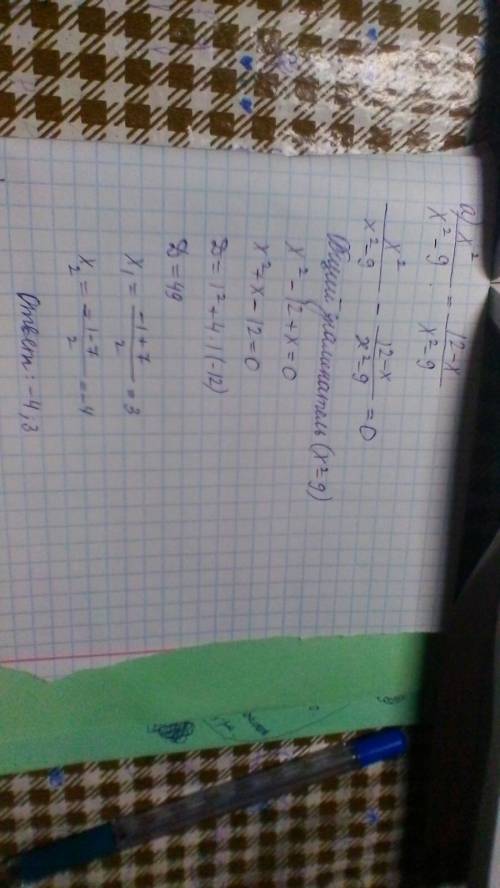 а) x²/(x²-9) = (12-x)/(x²-9)
x²/(x²-9) - (12-x)/(x²-9) = 0
Общий знаменатель (x²-9)
x² - 12 + x = 0
x² + x - 12 = 0
D = 1² + 4·(-12)
D = 49
x₁ = (-1+7)/2 = 3
x₂ = (-1-7)/2 = -4
Ответ: -4; 3